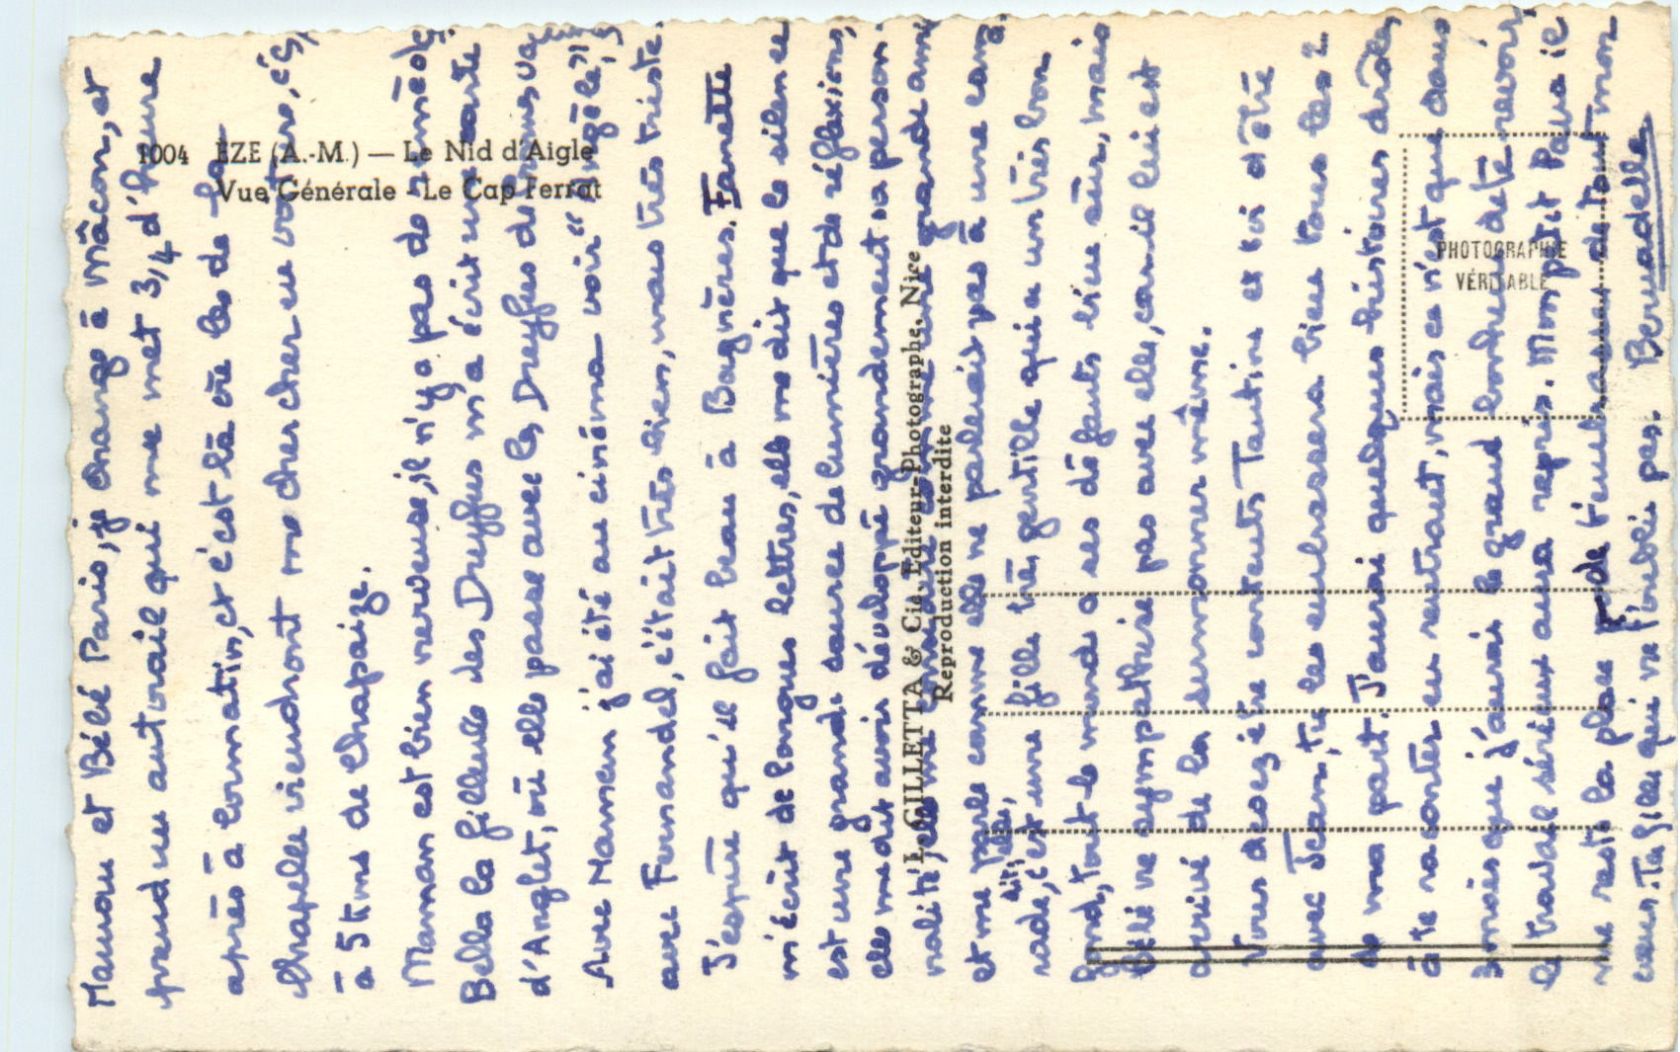 1004 ÈZE (A.-M.) — Le Nid d'Aigle
Vue Générale - Le Cap Ferrat
PHOTOGRAPHIE
VÉRITABLE
L. GILLETTA & Cie, Editeur-Photographe, Nice
Reproduction interdite
Maman et Bélé Paris, je change à Mâcon, et
prend un autorail qui me met 3/4 d'heure
après à Cormatin, et c'est là où les de la
Chapelle viendront me chercher en voiture, c'est
à 5 kms de Chapaize.
Maman est bien nerveuse, il n'y a pas de remède,
Bella la filleule des Dreyfus m'a écrit une carte
d'Anglet, où elle passe avec les Dreyfus de
Avec Maman j'ai été au cinéma voir "Angèle",
avec Fernandel, c'était très bien, mais très triste.
J'espère qu'il fait beau à Bagnères. Fanette
m'écrit de longues lettres, elle me dit que le silence
est une grande source de lumières et de réflexions,
elle me dit avoir développé grandement sa person-
nalité, elle me une grande amie
et me parle comme elle ne parlerait pas à une cama-
rade, c'est une fille très gentille qui a un très bon
fond, tout le monde a ses défauts bien sûr, mais
Bélé ne sympathise pas avec elle, car il lui est
arrivé de la sermonner même.
Vous devez être contents Tantine et toi d'être
avec Jean, tu les embrassera bien tous les 2
de ma part. J'aurai quelques histoires drôles
à te raconter en rentrant, mais ce n'est que dans
3 mois que j'aurai le grand bonheur de te revoir,
le travail sérieux aura repris. Mon petit Papa il
me reste la place de t'embrasser de tout mon
cœur. Ta fille qui ne t'oublie pas. Bernadette